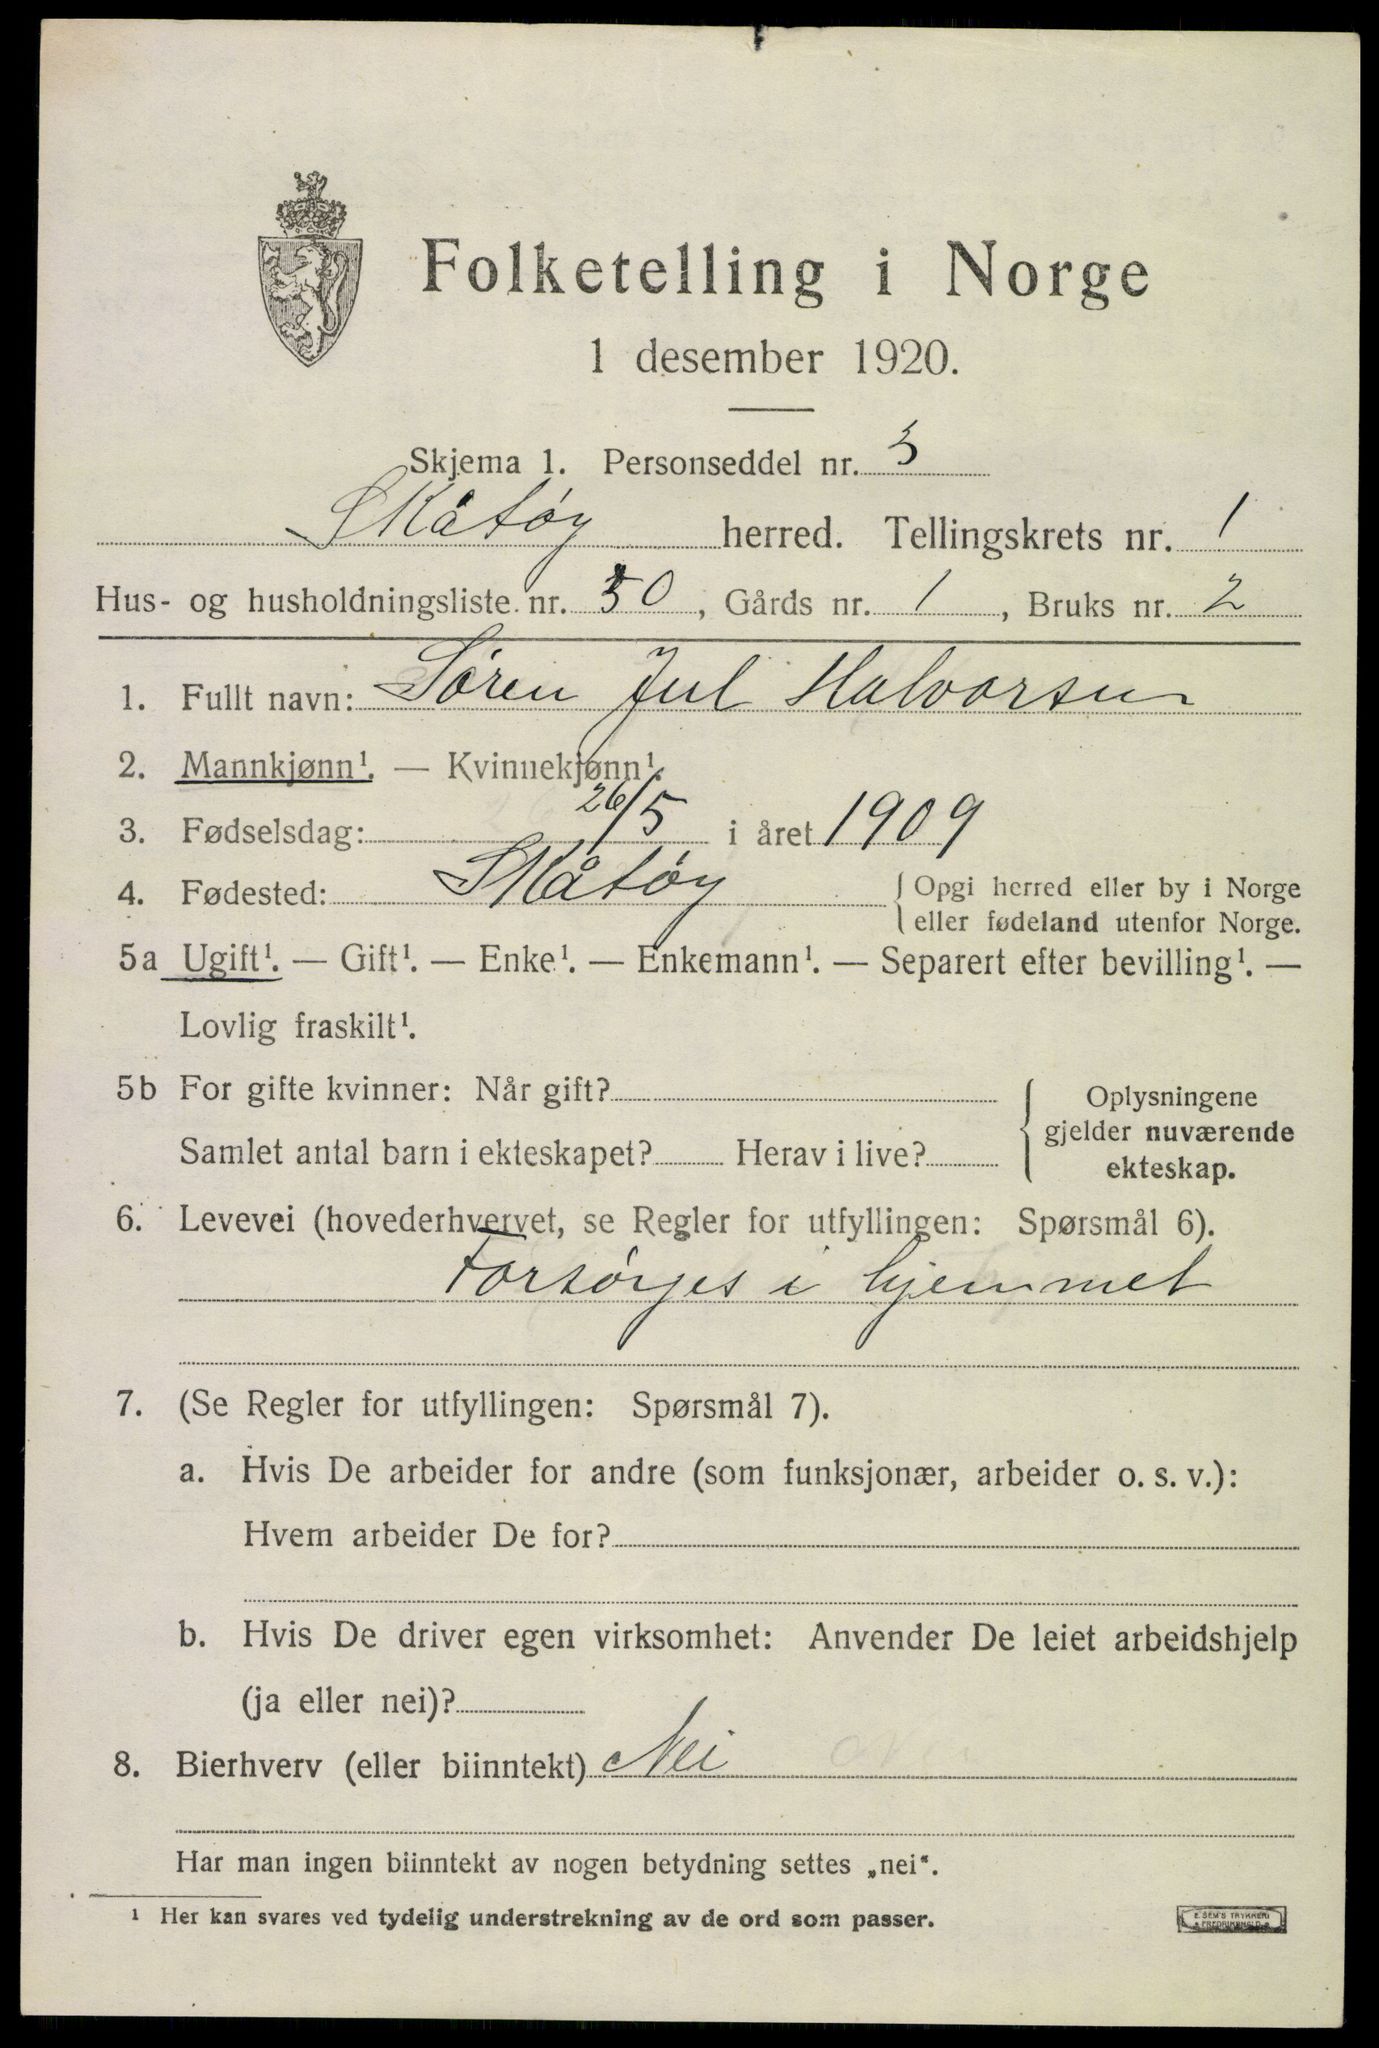 Folketelling i Norge
1 desember 1920.
Skjema 1. Personseddel nr. 3
Skåtøy herred. Tellingskrets nr. 1
Hus- og husholdningsliste nr. 50, Gårds nr. 1, Bruks nr. 2
1. Fullt navn: Søren Jul Halvorsen
2. Mannkjønn¹. — Kvinnekjønn¹.
3. Fødselsdag: 26/5 i året 1909
4. Fødested: Skåtøy { Opgi herred eller by i Norge
eller fødeland utenfor Norge.
5a Ugift¹. — Gift¹. — Enke¹. — Enkemann¹. — Separert efter bevilling¹. —
Lovlig fraskilt¹.
5b For gifte kvinner: Når gift? { Oplysningene
gjelder nuværende
Samlet antal barn i ekteskapet? Herav i live?
ekteskap.
6. Levevei (hovederhvervet, se Regler for utfyllingen: Spørsmål 6).
Forsørges i hjemmet
7. (Se Regler for utfyllingen: Spørsmål 7).
a. Hvis De arbeider for andre (som funksjonær, arbeider o. s. v.):
Hvem arbeider De for?
b. Hvis De driver egen virksomhet: Anvender De leiet arbeidshjelp
(ja eller nei)?
8. Bierhverv (eller biinntekt) Nei
Har man ingen biinntekt av nogen betydning settes „nei“.
¹ Her kan svares ved tydelig understrekning av de ord som passer.
E. SEM'S TRYKKERI
FREDRIKSHALD